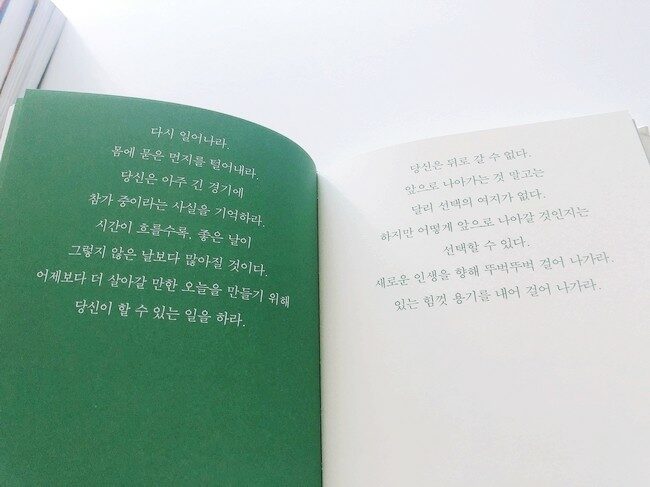 다시 일어나라.
몸에 묻은 먼지를 털어내라.
당신은 아주 긴 경기에
참가 중이라는 사실을 기억하라.
시간이 흐를수록, 좋은 날이
그렇지 않은 날보다 많아질 것이다.
어제보다 더 살아갈 만한 오늘을 만들기 위해
당신이 할 수 있는 일을 하라.
당신은 뒤로 갈 수 없다.
앞으로 나아가는 것 말고는
달리 선택의 여지가 없다.
하지만 어떻게 앞으로 나아갈 것인지는
선택할 수 있다.
새로운 인생을 향해 뚜벅뚜벅 걸어 나가라.
있는 힘껏 용기를 내어 걸어 나가라.